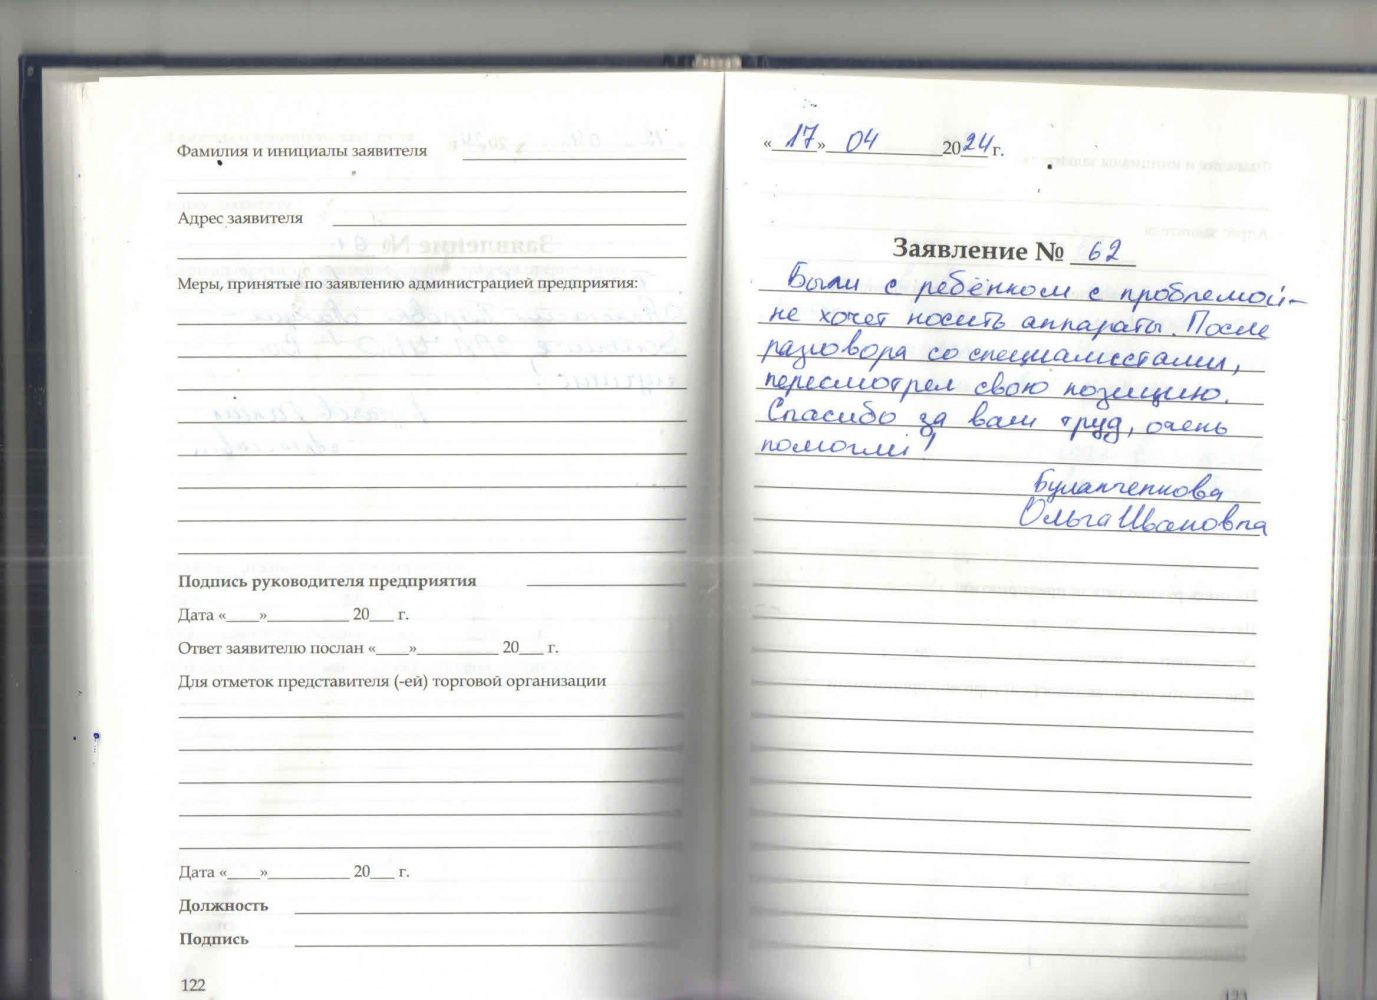 Фамилия и инициалы заявителя
Адрес заявителя
Меры, принятые по заявлению администрацией предприятия:
Подпись руководителя предприятия
Дата «____»__________ 20___ г.
Ответ заявителю послан «____»__________ 20___ г.
Для отметок представителя (-ей) торговой организации
Дата «____»__________ 20___ г.
Должность
Подпись
122
«17» 04 2024 г.
Заявление № 62
Были с ребёнком с проблемой -
не хочет носить аппараты. После
разговора со специалистами,
пересмотрел свою позицию.
Спасибо за ваш труд, очень
помогли!
Ольга Ивановна
123